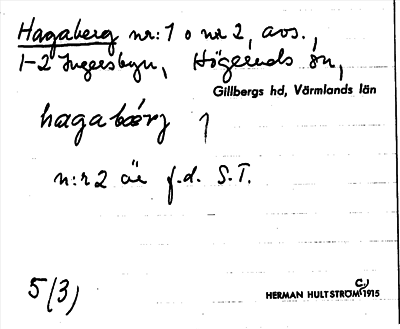 Hagaberg nr: 1 o nr 2, avs.,
1-2 Ingersbyn, Högeruds sn,
Gillbergs hd, Värmlands län
hagabärj 1
n:r 2 är f.d. S.T.
5(3)
HERMAN HULTSTRÖM C. 1915